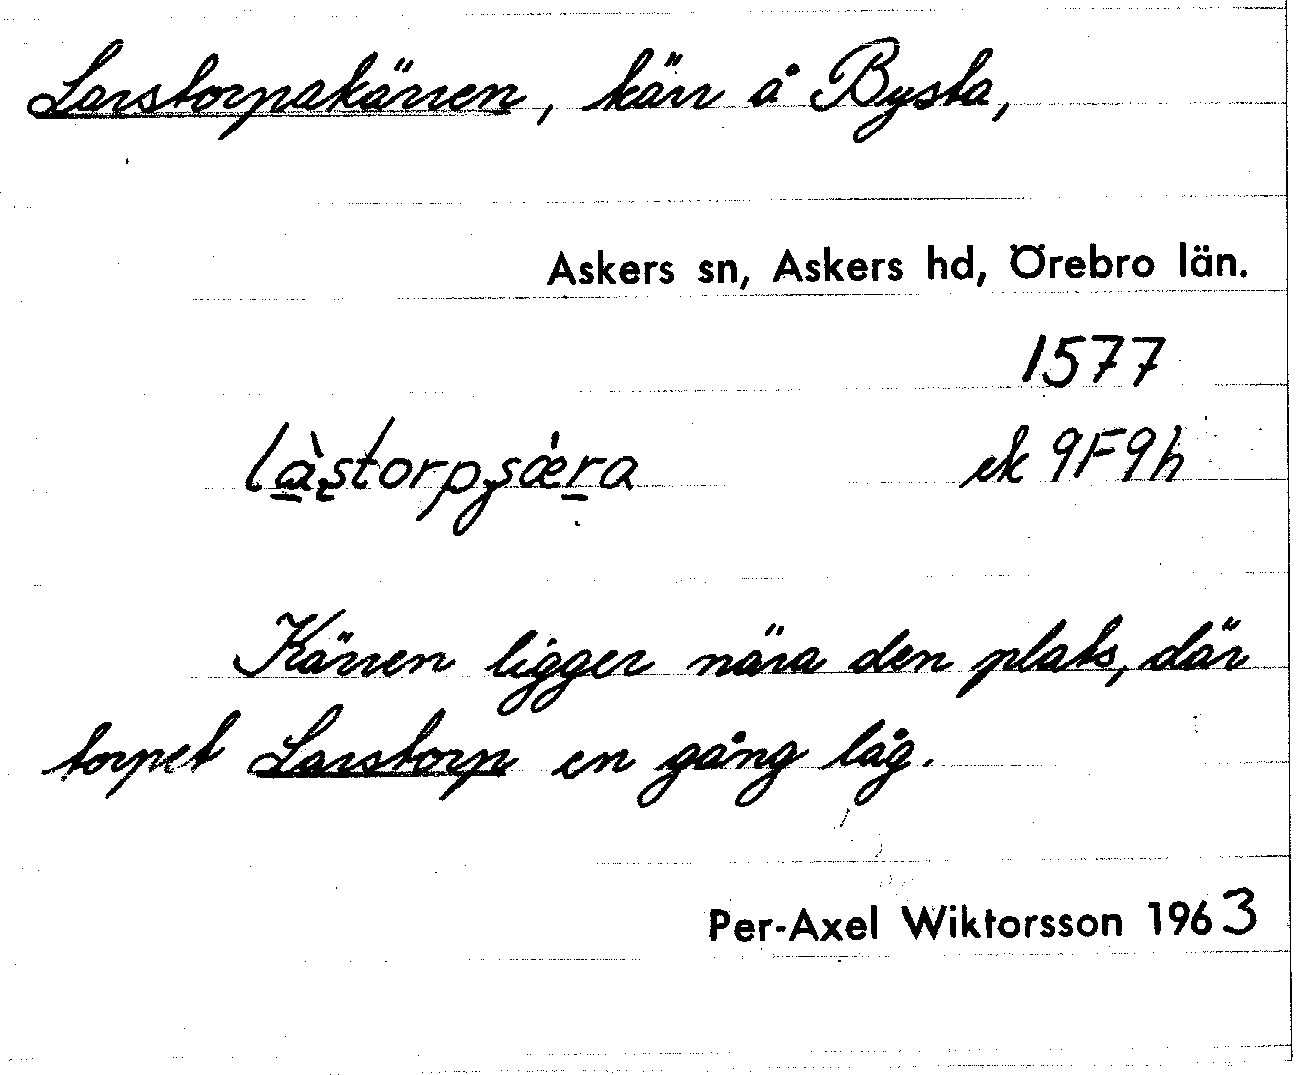 Larstorpakärren, kärr å Bysta,
Askers sn, Askers hd, Örebro län.
1577
ek 9F9h
Kärren ligger nära den plats, där
torpet Larstorp en gång låg.
Per-Axel Wiktorsson 1963